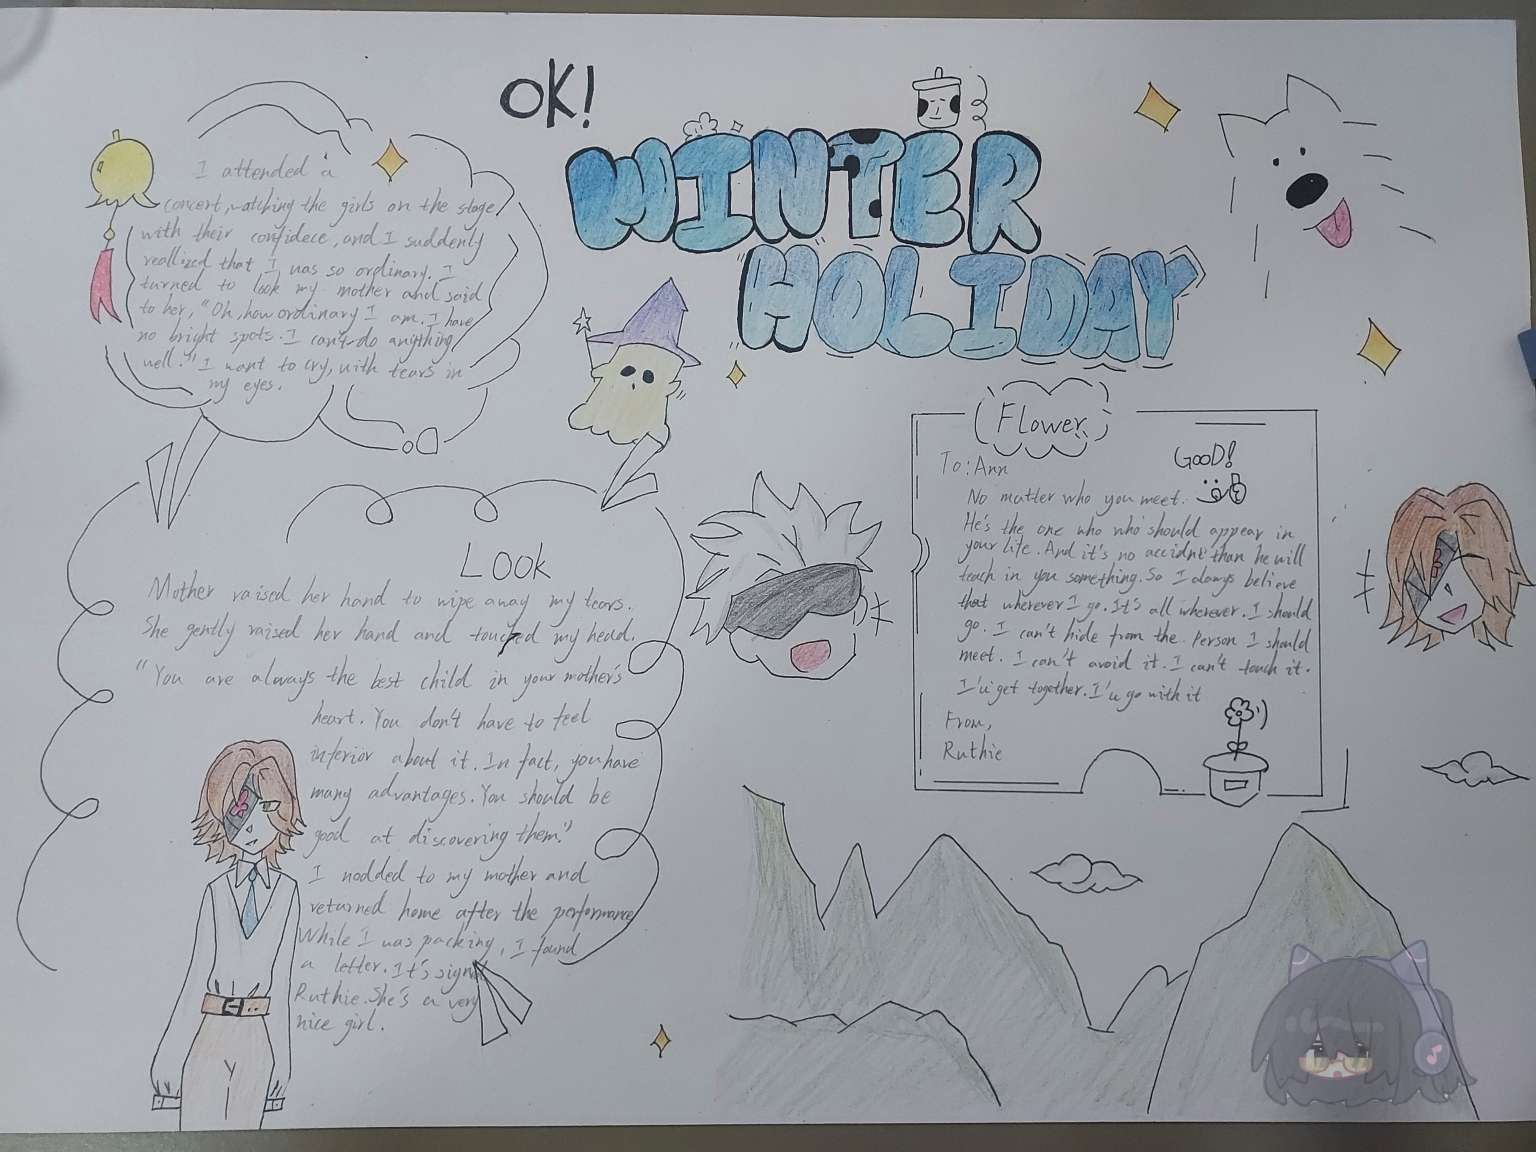 OK!
WINTER
HOLIDAY
I attended a
concert, watching the girls on the stage
with their confidece, and I suddenly
reallized that I was so ordinary. I
turned to look my mother and said
to her, "Oh, how ordinary I am. I have
no bright spots. I can't do anything
well." I want to cry, with tears in
my eyes.
Look
Mother raised her hand to wipe away my tears.
She gently raised her hand and touched my head.
"You are always the best child in your mother's
heart. You don't have to feel
inferior about it. In fact, you have
many advantages. You should be
good at discovering them."
I nodded to my mother and
returned home after the performance
While I was packing, I found
a letter. It's sign
Ruthie. She's a very
nice girl.
Flower
To: Ann
GOOD!
No matter who you meet.
He's the one who who should appear in
your life. And it's no accidnt than he will
teach in you something. So I always believe
that wherever I go. It's all wherever. I should
go. I can't hide from the. Person I should
meet. I can't avoid it. I can't touch it.
I'll get together. I'll go with it
From,
Ruthie